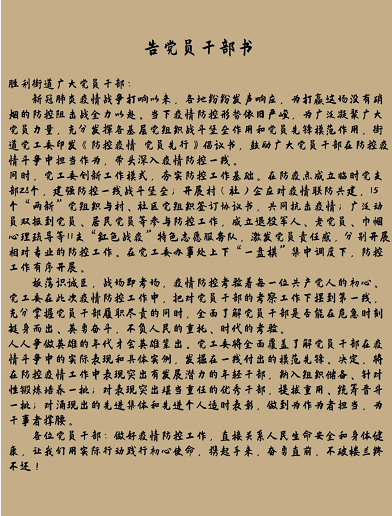 告党员干部书
胜利街道广大党员干部：
新冠肺炎疫情战争打响以来，各地纷纷发声响应，为打赢这场没有硝
烟的防控阻击战全力以赴。当下疫情防控形势依旧严峻，为广泛凝聚广大
党员力量，充分发挥各基层党组织战斗堡垒作用和党员先锋模范作用，街
道党工委印发《防控疫情 党员先行》倡议书，鼓励广大党员干部在防控疫
情斗争中担当作为，带头深入疫情防控一线。
同时，党工委创新工作模式，夯实防控工作基础。在防疫点成立临时党支
部23个，建强防控一线战斗堡垒；开展村（社）企在对疫情联防共建，15
个“两新”党组织与村、社区党组织签订协议书，共同抗击疫情；广泛动
员双报到党员、居民党员等参与防控工作，成立退役军人、老党员、巾帼
心理疏导等11支“红色战疫”特色志愿服务队，激发党员责任感，分别开展
相对专业的防控工作。在党工委办事处上下“一盘棋”集中调度下，防控
工作有序开展。
板荡识诚臣，战场即考场，疫情防控考验着每一位共产党人的初心。
党工委在此次疫情防控工作中，把对党员干部的考察工作下摆到第一线，
充分掌握党员干部履职尽责的同时，全面了解党员干部是否能在危急时刻
挺身而出、英勇奋斗，不负人民的重托、时代的考验。
人人争做英雄的年代才会英雄辈出。党工委将全面覆盖了解党员干部在疫
情斗争中的实际表现和具体案例，发掘在一线付出的模范先锋。决定，将
在防控疫情工作中表现突出有发展潜力的年轻干部，纳入组织储备、针对
性锻炼培养一批；对表现突出堪当重任的优秀干部，提拔重用、统筹晋升
一批；对涌现出的先进集体和先进个人适时表彰，做到为作为者担当，为
干事者撑腰。
各位党员干部：做好疫情防控工作，直接关系人民生命安全和身体健
康，让我们用实际行动践行初心使命，携起手来，奋勇直前，不破楼兰终
不还！